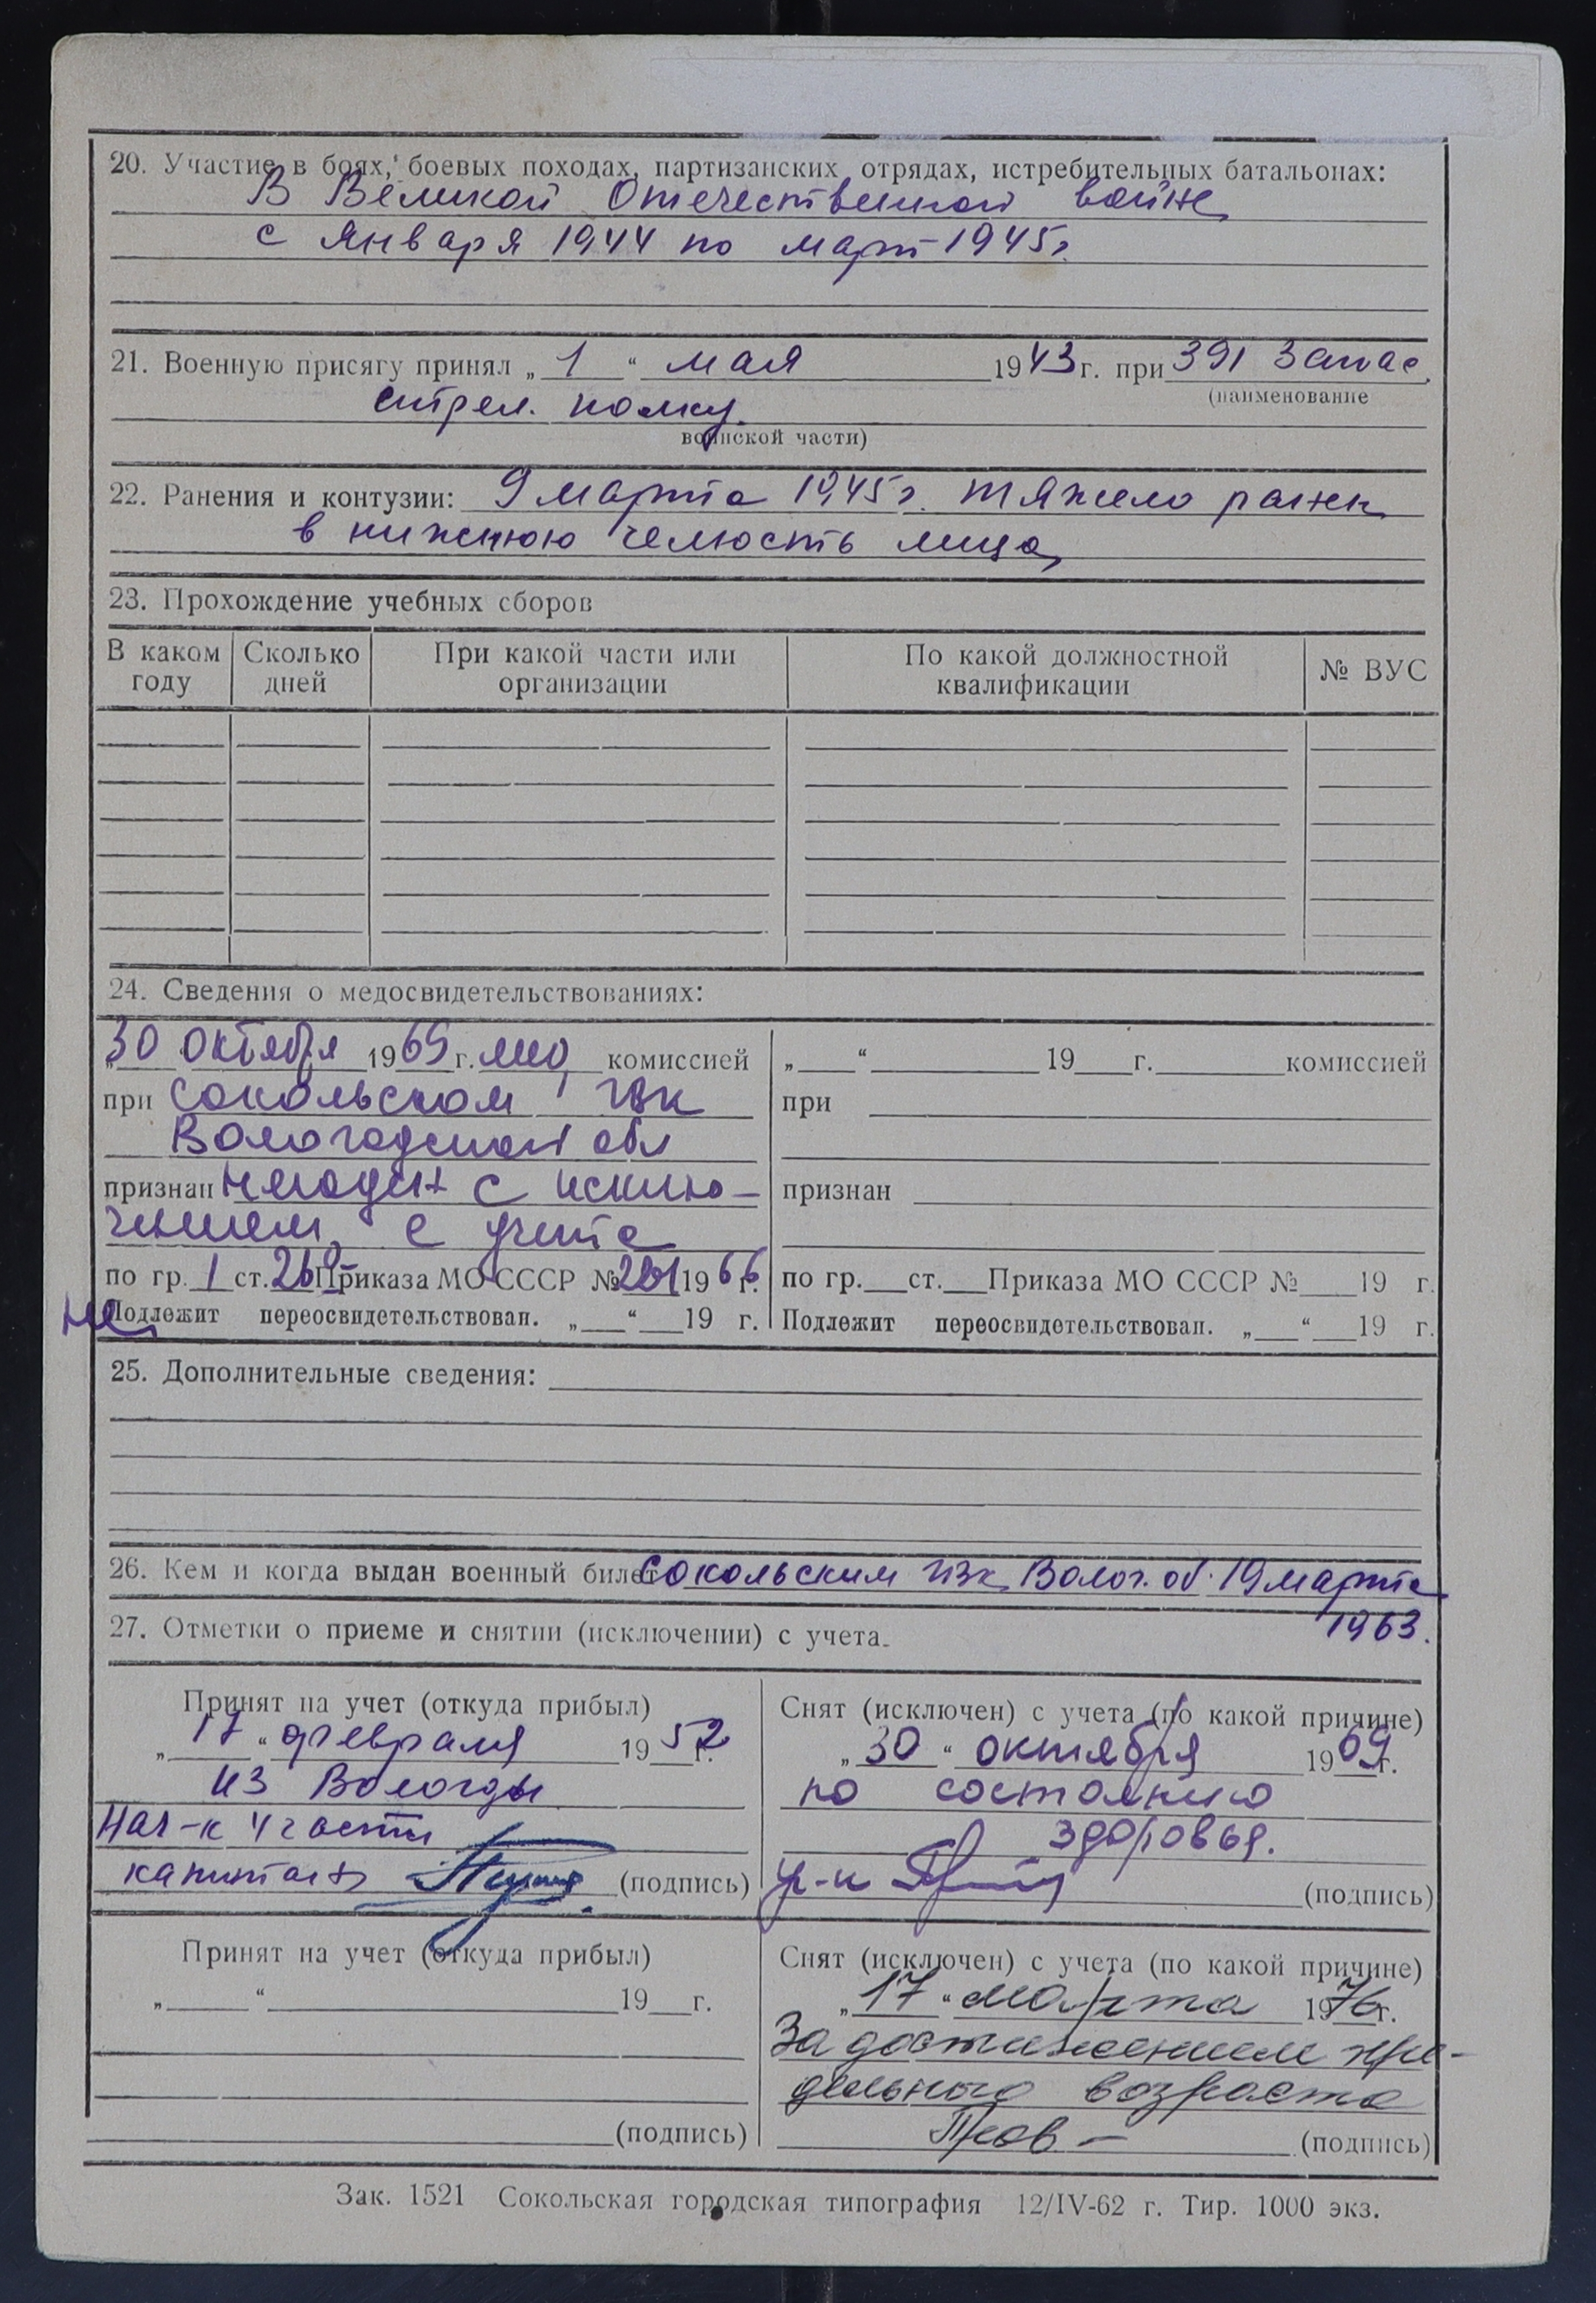 20. Участие в боях, боевых походах, партизанских отрядах, истребительных батальонах:
В Великой Отечественной войне
с января 1944 по март 1945г.
21. Военную присягу принял „ 1 “ мая 1943 г. при 391 Запас.
(наименование
стрел. полку.
воинской части)
22. Ранения и контузии: 9 марта 1945г. тяжело ранен
в нижнюю челюсть лица
23. Прохождение учебных сборов
В каком году Сколько дней При какой части или организации По какой должностной квалификации № ВУС
24. Сведения о медосвидетельствованиях:
„30 октября 1969 г. комиссией
при Сокольском ГВК
Вологодской обл
признан негоден с исклю-
чением с учета
по гр. 1 ст. Приказа МО СССР № 1966 г.
не Подлежит переосвидетельствован. „ “ 19 г.
„ “ 19 г. комиссией
при
признан
по гр. ст. Приказа МО СССР № 19 г.
Подлежит переосвидетельствован. „ “ 19 г.
25. Дополнительные сведения:
26. Кем и когда выдан военный билет Сокольским ГВК Волог. об. 19 марта
1963.
27. Отметки о приеме и снятии (исключении) с учета.
Принят на учет (откуда прибыл)
„ 17 “ февраля 1952 г.
из Вологды
Нач-к 4 части
капитан (подпись)
Снят (исключен) с учета (по какой причине)
„ 30 “ октября 1969 г.
по состоянию
здоровья.
(подпись)
Принят на учет (откуда прибыл)
„ “ 19 г.
(подпись)
Снят (исключен) с учета (по какой причине)
„ 17 “ марта 1976 г.
За достижением пре-
дельного возраста
(подпись)
Зак. 1521 Сокольская городская типография 12/IV-62 г. Тир. 1000 экз.